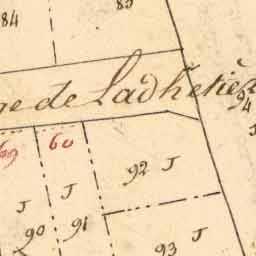 84
85
ge de Ladhetiè
94
60
92 J
J
J
90
91
93 J